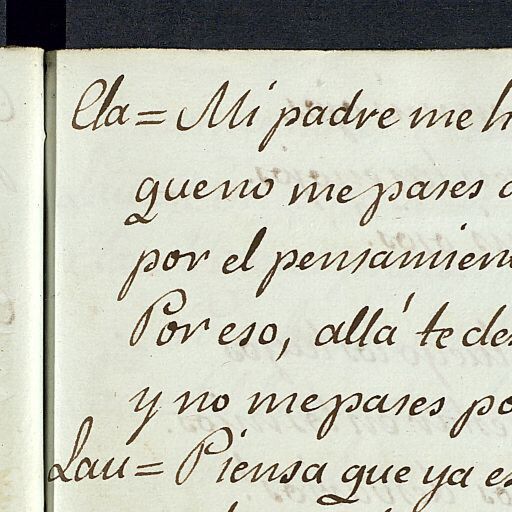 Cla = Mi padre me h
que no me pases
por el pensamien
Por eso, allá te des
y no me pases po
Lau = Piensa que ya es